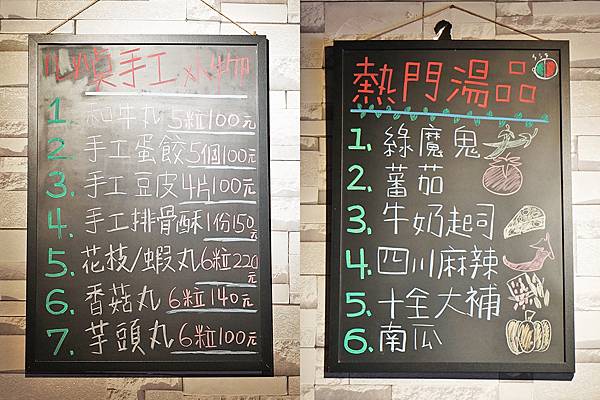 必嗔手工火鍋物
1. 和牛丸 5粒100元
2. 手工蛋餃 5個100元
3. 手工豆皮 4片100元
4. 手工排骨酥 1份150元
5. 花枝/蝦丸 6粒220元
6. 香菇丸 6粒140元
7. 芋頭丸 6粒100元
熱門湯品
1. 綠魔鬼
2. 蕃茄
3. 牛奶起司
4. 四川麻辣
5. 十全大補
6. 南瓜